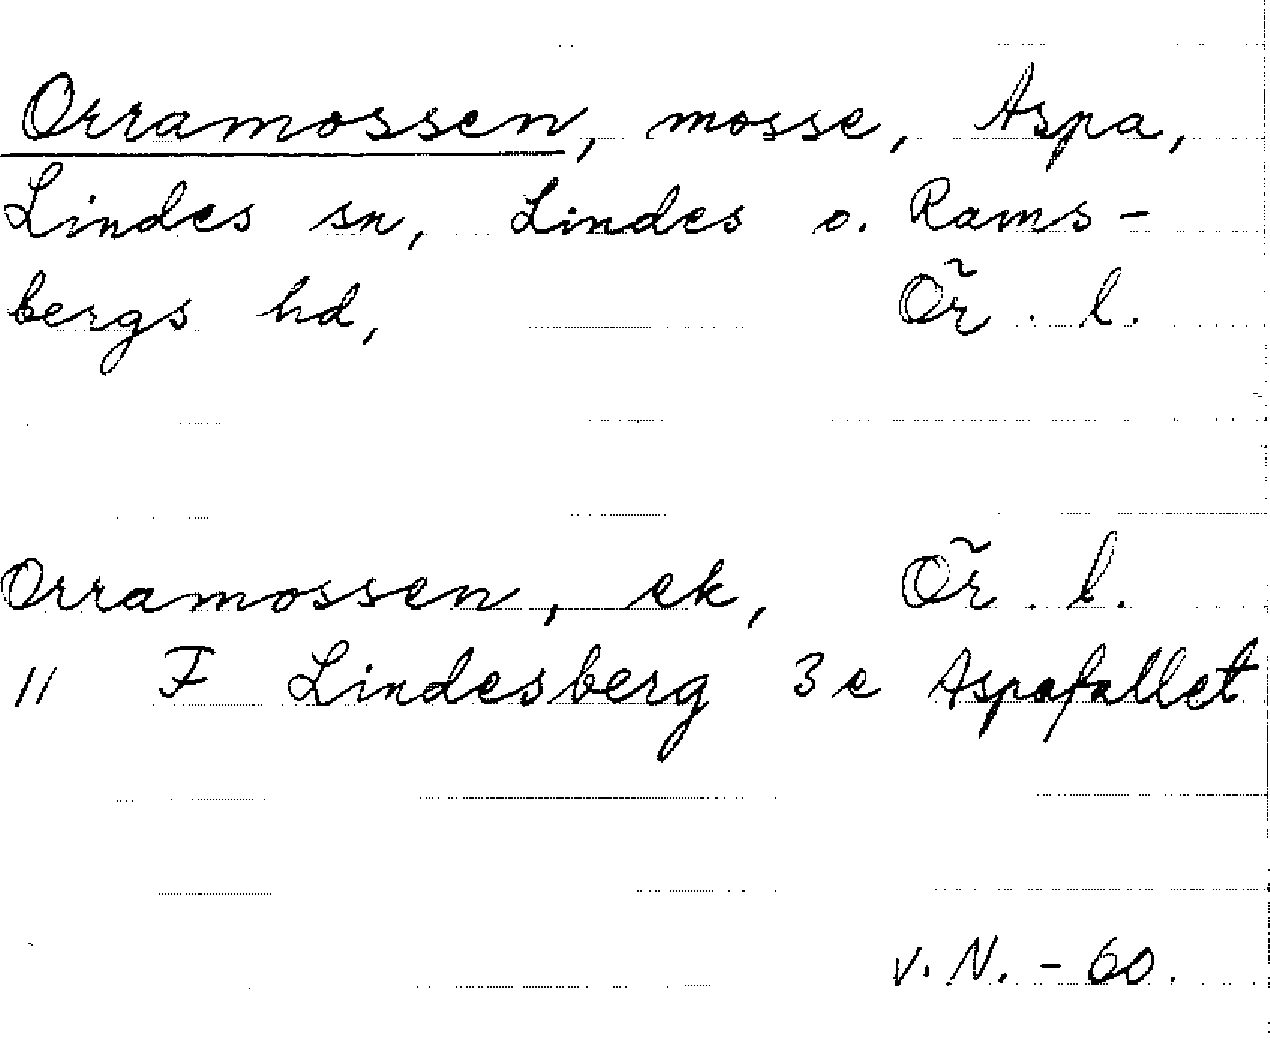 Orramossen, mosse, Aspa,
Lindes sn, Lindes o. Rams-
bergs hd, Ör. l.
Orramossen, ek, Ör. l.
11 F Lindesberg 3e Aspafallet
v. N. - 60.